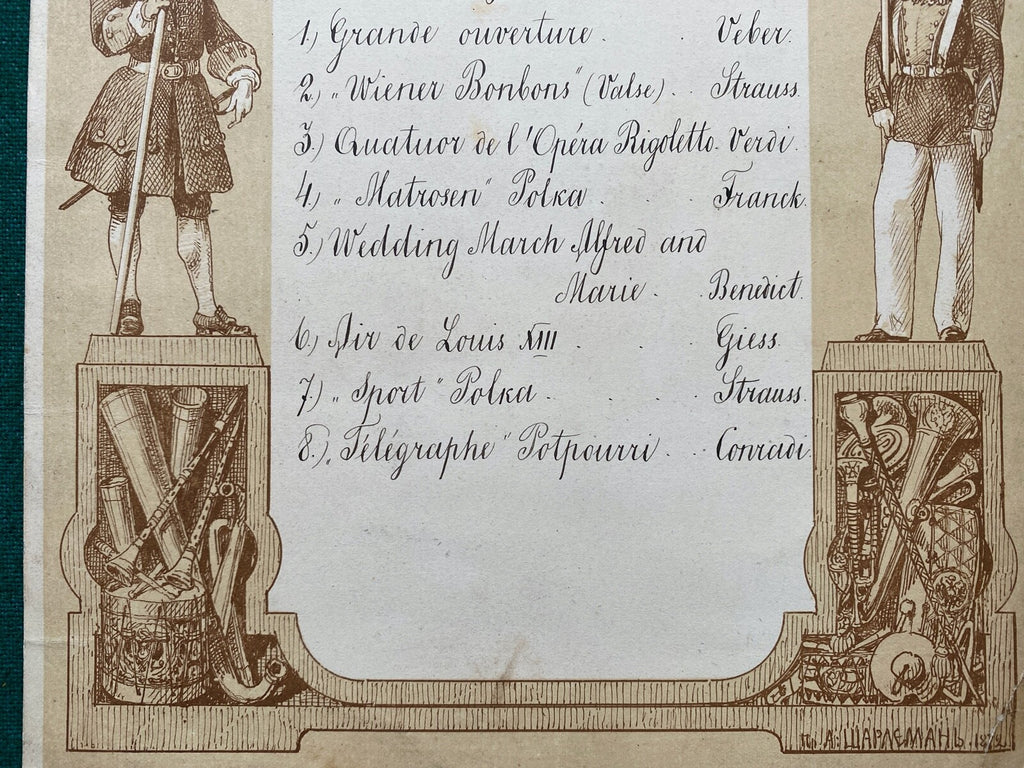 1.) Grande ouverture . . Veber.
2.) „Wiener Bonbons" (Valse) . . Strauss.
3.) Quatuor de l'Opéra Rigoletto - Verdi.
4.) „Matrosen" Polka . . . Franck.
5.) Wedding March Alfred and
Marie . . Benedict.
6.) Air de Louis XIII . . . Giess.
7.) „Sport" Polka . . . . Strauss.
8.) „Télégraphe" Potpourri . . Conradi.
А. ШАРЛЕМАНЬ. 1872